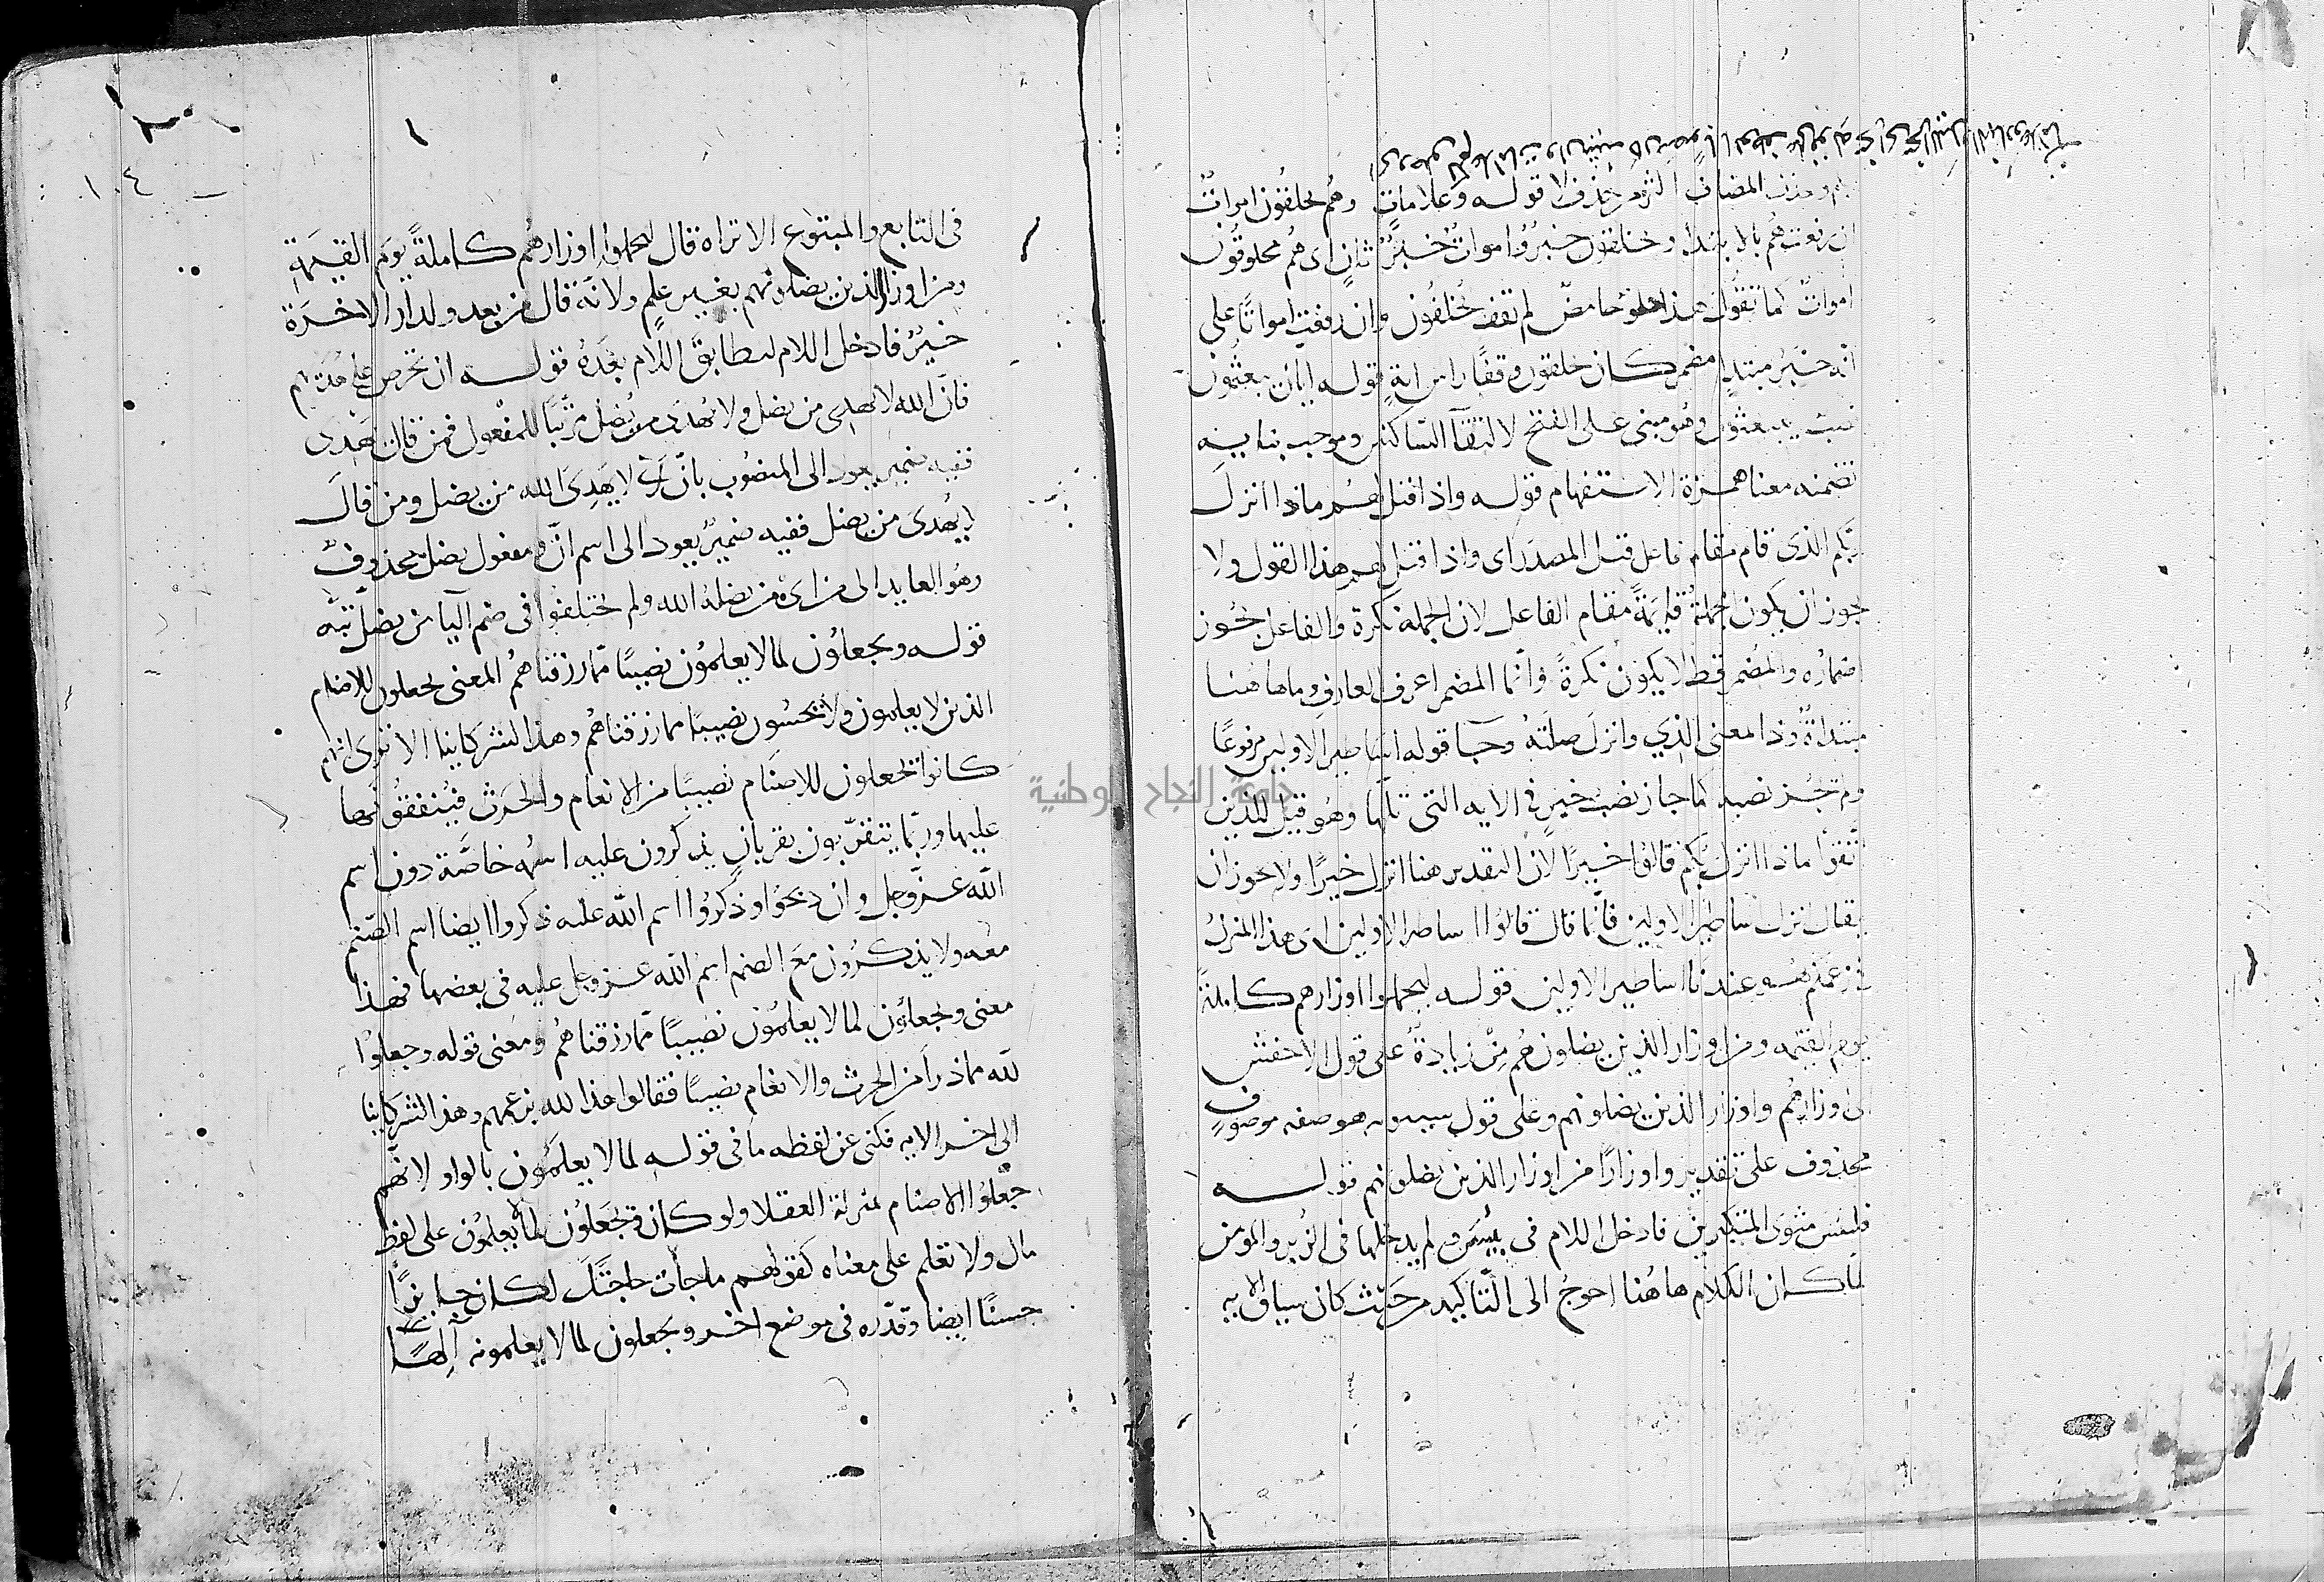 وحذف المضاف قوله وعلامات وهم يخلقون اموات
ان رفعت هم بالابتدا ويخلقون خبر واموات خبرٌ ثانٍ اى هم مخلوقون
اموات كما تقول هذا حلو حامض لم تقف يخلقون وان رفعت امواتًا على
انه خبر مبتدا مضمر كان يخلقون وقفًا راس اية قوله ايان يبعثون
يبعثون وهو مبنى على الفتح لالتقآ الساكنين وموجب بنايه
تضمنه معنا همزة الاستفهام قوله واذا قيل لهم ماذا انزل
ربكم الذى قام مقام فاعل قيل المصدر اى واذا قيل لهم هذا القول ولا
يجوز ان يكون الجملةُ قايمةً مقام الفاعل لان الجملة نكرة والفاعل يجوز
اضماره والمضمر قط لا يكون نكرةً وانما المضمر اعرف المعارف وما هاهنا
مبتداةٌ وذا بمعنى الذي وانزل صلته وجا قوله اساطير الاولين مرفوعًا
ولم يجز نصبه كما جاز نصب خير فى الايه التى تليها وهو قيل للذين
اتقوا ماذا انزل ربكم قالوا خيرًا لان التقدير هنا انزل خيرًا ولا يجوز ان
يقال انزل اساطير الاولين فانما قال قالوا اساطير الاولين اى هذا المنزل
فى زعمكم هو عندنا اساطير الاولين قوله ليحملوا اوزارهم كاملةً
يوم القيمه ومن اوزار الذين يضلونهم مِنْ زيادةٌ على قول الاخفش
اى اوزارهم واوزار الذين يضلونهم وعلى قول سيبويه هو صفه موصوفٍ
محذوف على تقدير واوزارًا من اوزار الذين يضلونهم قوله
فلبئس مثوى المتكبرين فادخل اللام فى بئس ولم يدخلها فى الزمر والمؤمن
لما كان الكلام هاهُنا احوجُ الى التاكيد من حَيْث كان سياق الايه
١٠٤
فى التابع والمتبوع الا تراه قال ليحملوا اوزارهم كاملةً يوم القيمَةِ
ومن اوزار الذين يضلونهم بغير علم ولانّه قال من بعد ولدار الاخرة
خيرٌ فادخل اللام ليطابق اللام بعده قوله ان تحرص على هديهم
فانّ الله لا يهدى من يضل ولا يُهدَى من يُضل مرتّبًا للمفعول فمن قال يَهْدِى
ففيه ضمير يعود الى المنصوب بانّ اى لا يَهدِى الله من يضل ومن قال
لا يُهْدَى من يضل ففيه ضميرٌ يعود الى اسم انّ ومفعول يضل محذوفٌ
وهو العايد الى من اى من يضله الله ولم يختلفوا فى ضم اليا من يضل ثبّه
قوله ويجعلون لما لا يعلمون نصيبًا ممّا رزقناهم المعنى يجعلون للاصنام
الذين لا يعلمون ولا يحسون نصيبًا مما رزقناهم وهذا لشركاينا الا ترى انهم
كانوا يجعلون للاصنام نصيبًا من الانعام والحرث فينفقونها
عليها وربّما يتقرّبون بقربانٍ يذكرون عليه اسمه خاصَّة دون اسم
الله عزّ وجل وان ذبحوا وذكرُوا اسم الله عليه ذكروا ايضا اسم الصّنم
معه ولا يذكرُون مع الصنم اسم الله عز وجل عليه فى بعضها فهذا
معنى ويجعلون لما لا يعلمون نصيبًا ممّا رزقناهم ومعنى قوله وجعلوا
لله مما ذرا من الحرث والانعام نصيبًا فقالوا هذا لله بزعمهم وهذا لشركاينا
الى اخر الايه فكنى عن لفظه ما فى قوله لما لا يعلمون بالواو لانّهم
جعلوا الاصنام بمنزلة العقلا ولو كان ويجعلون لما لا يعلمون على لفظ
مال ولا تعلم على معناه كقولهم ما جأت حاجتَكَ لكان جايزًا
حسنًا ايضا وقدّره فى موضع اخر ويجعلون لما لا يعلمونه آلِهًـا
جامعة النجاح الوطنية